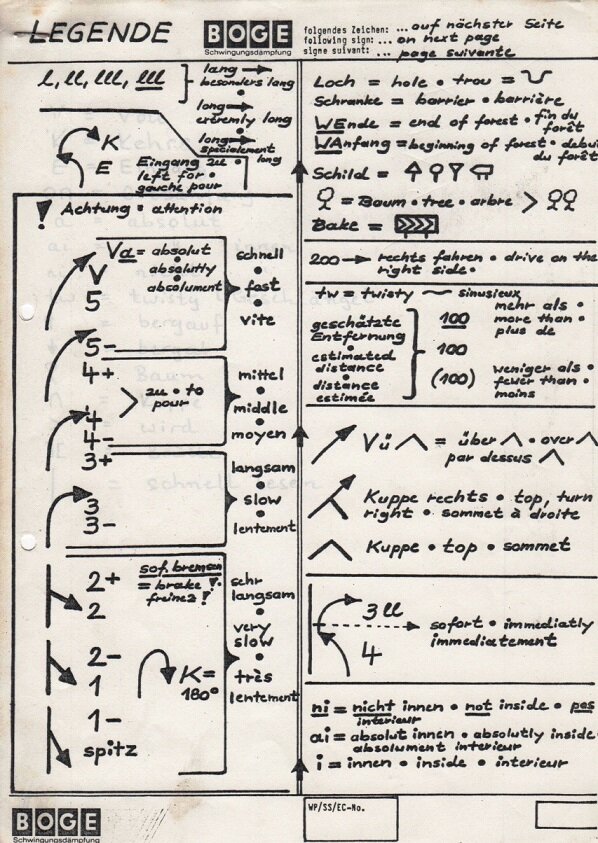 LEGENDE
BOGE
Schwingungsdämpfung
folgendes Zeichen: ... auf nächster Seite
following sign: ... on next page
signe suivant: ... page suivante
l, ll, lll, lll
lang
besonders lang
long
extremly long
long
specialement long
K
E
Eingang zu
left for
gauche pour
! Achtung • attention
Va = absolut
• absolutly
absolument
V
5
5-
schnell
•
fast
•
vite
4+
4
4-
zu • to
pour
mittel
•
middle
•
moyen
3+
3
3-
langsam
•
slow
•
lentement
2+
2
sof. bremsen
= brake !
freinez !
2-
1
K =
180°
1-
spitz
sehr
langsam
•
very
slow
•
très
lentement
Loch = hole • trou =
Schranke = barrier • barrière
WEnde = end of forest • fin du forêt
WAnfang = beginning of forest • debut du forêt
Schild =
= Baum • tree • arbre >
Bake =
200 → rechts fahren • drive on the
right side •
tw = twisty ~ sinusieux
geschätzte
Entfernung
•
estimated
distance
•
distance
estimée
100
mehr als •
more than •
plus de
100
(100)
weniger als •
fewer than •
moins
Vü = über • over
par dessus
Kuppe rechts • top, turn
right • sommet à droite
Kuppe • top • sommet
3 ll
4
sofort • immediatly
immediatement
ni = nicht innen • not inside • pas
interieur
ai = absolut innen • absolutly inside
absolument interieur
i = innen • inside • interieur
BOGE
Schwingungsdämpfung
WP/SS/EC-No.